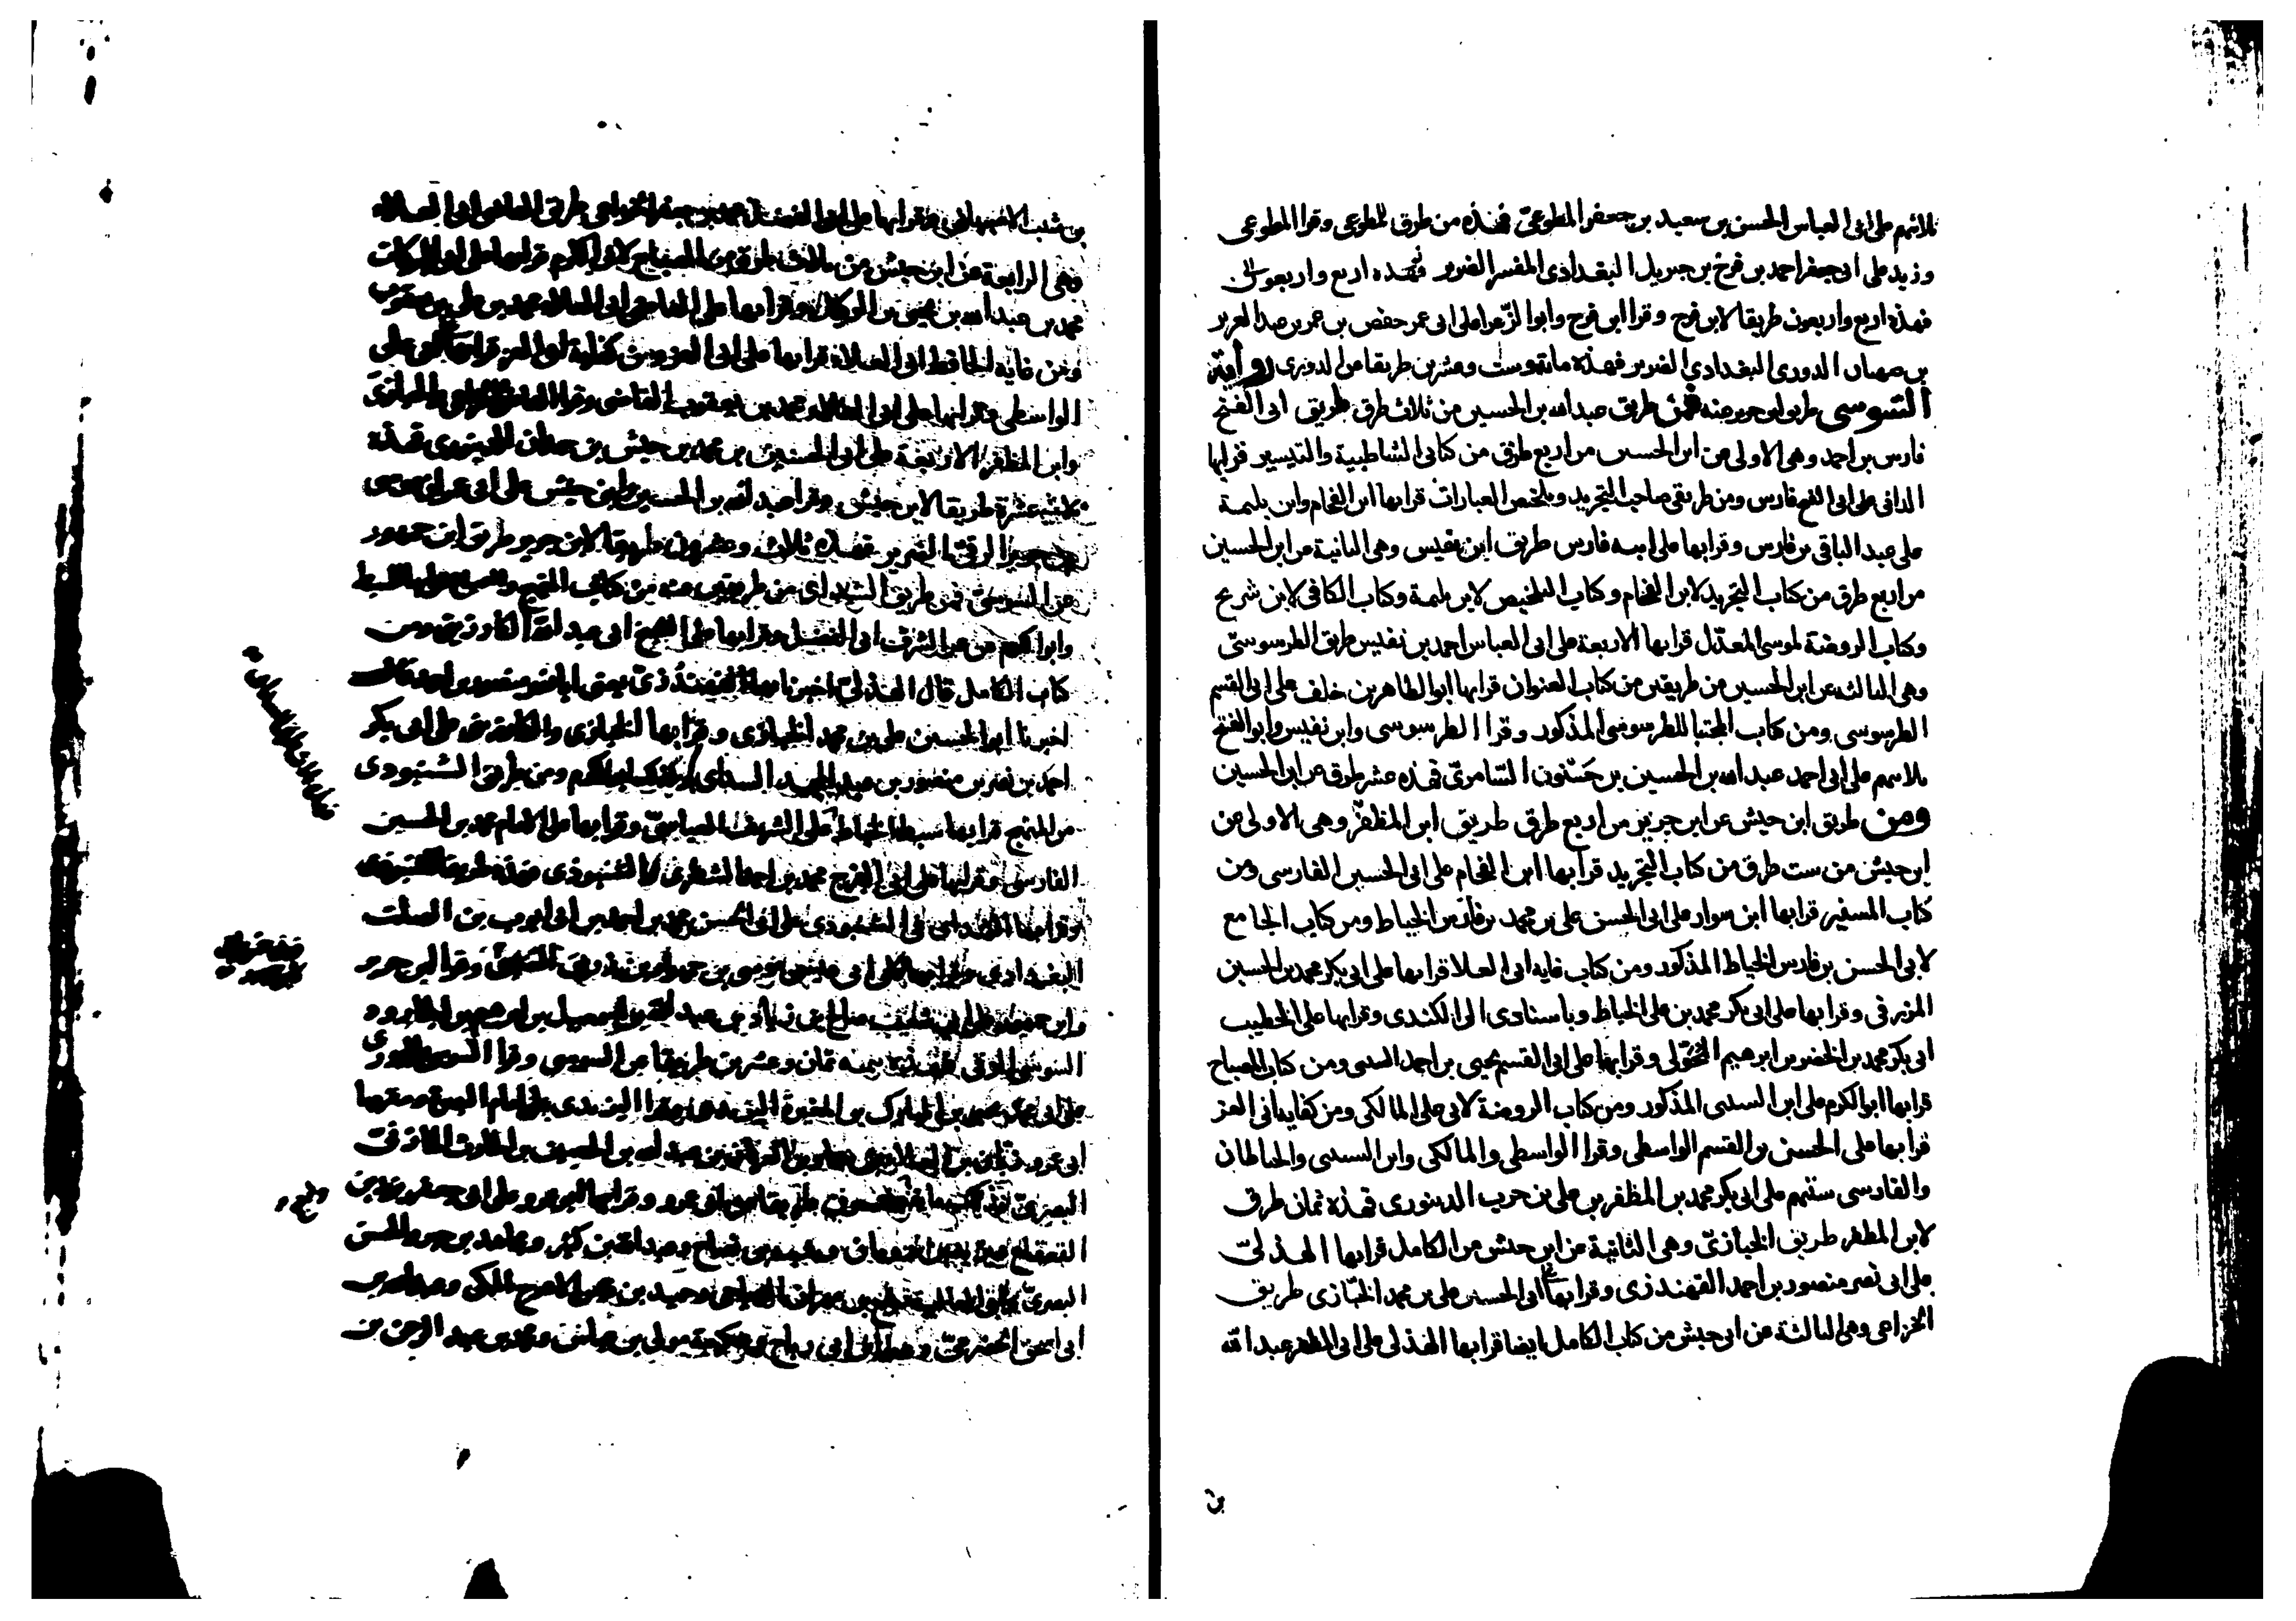 ثلاثتهم على ابى العباس الحسن بن سعيد بن جعفر المطوعىّ فهذه من طرق المطوعى وقرا المطوعى
وزيد على ابى جعفر احمد بن فرح بن جبريل البغدادى المفسر الضرير فهذه اربع واربعون
فهذه اربع واربعون طريقا لابن فرح وقرا ابن فرح وابوالزعرا على ابى عمر حفص بن عمر بن عبد العزيز
بن صهبان الدورى البغدادى الضرير فهذه ماية وست وعشرين طريقا من الدورى رواية
السوسى طريق ابن جرير عنه فمن طريق عبد الله بن الحسين من ثلاث طرق طريق ابى الفتح
فارس بن احمد وهى الاولى عن ابن الحسين من اربع طرق من كتابى الشاطبية والتيسير قرا بها
الدانى على ابى الفتح فارس ومن طريقى صاحب التجريد وتلخيص العبارات قرا بها ابن الفحام وابن بليمة
على عبد الباقى بن فارس وقرا بها على ابيه فارس طريق ابن نفيس وهى الثانية عن ابن الحسين
من اربع طرق من كتاب التجريد لابن الفحام وكتاب التلخيص لابن بليمة وكتاب الكافى لابن شريح
وكتاب الروضة لموسى المعدّل قرا بها الاربعة على ابى العباس احمد بن نفيس طريق الطرسوسىّ
وهى الثالثة عن ابن الحسين من طريقين من كتاب العنوان قرا بها ابوالطاهر بن خلف على ابى القسم
الطرسوسى ومن كتاب المجتبا للطرسوسى المذكور وقرا الطرسوسى وابن نفيس وابوالفتح
ثلاثتهم على ابى احمد عبد الله بن الحسين بن حَسْنون السّامرىّ فهذه عشر طرق عن ابن الحسين
ومن طريق ابن حبش عن ابن جرير من اربع طرق طريق ابن المظفر وهى الاولى عن
ابن حبش من ست طرق من كتاب التجريد قرا بها ابن الفحام على ابى الحسين الفارسى ومن
كتاب المستنير قرا بها ابن سوار على ابى الحسن على بن محمد بن فارس الخياط ومن كتاب الجامع
لابى الحسن بن فارس الخياط المذكور ومن كتاب غاية ابى العلا قرا بها على ابى بكر محمد بن الحسين
المزرفى وقرا بها على ابى بكر محمد بن على الخياط وباسنادى الى الكندى وقرا بها على الخطيب
ابى بكر محمد بن الخضر بن ابرهيم المُحَوّلى وقرا بها على ابى القسم يحيى بن احمد السيبى ومن كتاب المصباح
قرا بها ابوالكرم على ابن السيبى المذكور ومن كتاب الروضة لابى على المالكى ومن كفاية ابى العز
قرا بها على الحسن بن القسم الواسطى وقرا الواسطى والمالكى وابن السيبى والخياطان
والفارسى ستتهم على ابى بكر محمد بن المظفر بن على بن حرب الدينورى فهذه ثمان طرق
لابن المظفر طريق الخبازىّ وهى الثانية عن ابن حبش من الكامل قرا بها الهذلىّ
على ابى نصر منصور بن احمد القهندزى وقرا بها على ابى الحسين على بن محمد الخبّازى طريق
الخزاعى وهى الثالثة عن ابن حبش من كتاب الكامل ايضا قرا بها الهذلى على ابى المظفر عبد الله
بن
بن شبيب الاصبهانى وقرا بها على ابى الفضل محمد بن جعفر الخزاعى طريق القاضى ابى العلاء
وهى الرابعة عن ابن حبش من ثلاث طرق من المصباح لابى الكرم قرا بها على ابى البركات
محمد بن عبد الله بن يحيى بن الوكيل وقرا بها على القاضى ابى العلاء محمد بن على بن يعقوب
ومن غاية الحافظ ابى العلاء قرا بها على ابى العز ومن كفاية ابى العز قرا بها على
الواسطى وقرا بها على ابى العلاء محمد بن يعقوب القاضى وقرا القاضى والخزاعى والخبازى
وابن المظفر الاربعة على ابى الحسين بن محمد بن حبش بن حمدان الدينورى فهذه
ثلاثة عشرة طريقا لابن حبش وقرا عبد الله بن الحسين وابن حبش على ابى عمران موسى
بن جرير الرقىّ الضرير فهذه ثلاث وعشرون طريقا لابن جرير طريق ابن جمهور
عن السوسى فمن طريق الشذاى من طريقين عنه من كتابى المبهج
وابوالكرم على الشرف ابى الفضل وقرا بها على الشيخ ابى عبد الله الكارزينى ومن
كتاب الكامل قال الهذلىّ اخبرنا بها القهندُزىّ يعنى ابا نصر منصور بن احمد قال
اخبرنا ابوالحسين على بن محمد الخبازى وقرا بها الخبازى والكارزينى على ابى بكر
احمد بن نصر بن منصور بن عبد المجيد الشذاى ومن طريق الشنبوذى
من المبهج قرا بها سبط الخياط على الشريف العباسىّ وقرا بها على الامام محمد بن الحسين
الفارسى وقرا بها على ابى الفرج محمد بن احمد الشطوى الشنبوذى فهذه طريق الشنبوذى
وقرا بها الشذاى والشنبوذى على ابى الحسن محمد بن احمد بن ايوب بن الصلت
البغدادى وقرا بها على ابى عيسى موسى بن جمهور بن زريق التنيسى وقرا ابن جرير
وابن جمهور على ابى شعيب صالح بن زياد بن عبد الله بن اسمعيل بن ابرهيم بن الجارود
السوسى الرقى فهذه تتمة ثمان وعشرين طريقا عن السوسى وقرا السوسى والدورى
على ابى محمد يحيى بن المبارك بن المغيرة اليزيدى وقرا اليزيدى على امام البصرة ومقريها
ابى عمرو زبان بن العلاء بن عمار بن العريان بن عبد الله بن الحصين بن الحارث المازنى
البصرىّ طريقا عن ابى عمرو وقرا بها ابو عمرو على ابى جعفر يزيد بن
القعقاع ويزيد بن رومان وشيبة بن نصاح وعبد الله بن كثير ومجاهد بن جبر والحسن
البصرىّ وابى العالية رفيع بن مهران الرياحى وحميد بن قيس الاعرج المكى وعبد الله بن
ابى اسحق الحضرمىّ وعطا بن ابى رباح وعكرمة مولى بن عباس ومحمد بن عبد الرحمن بن